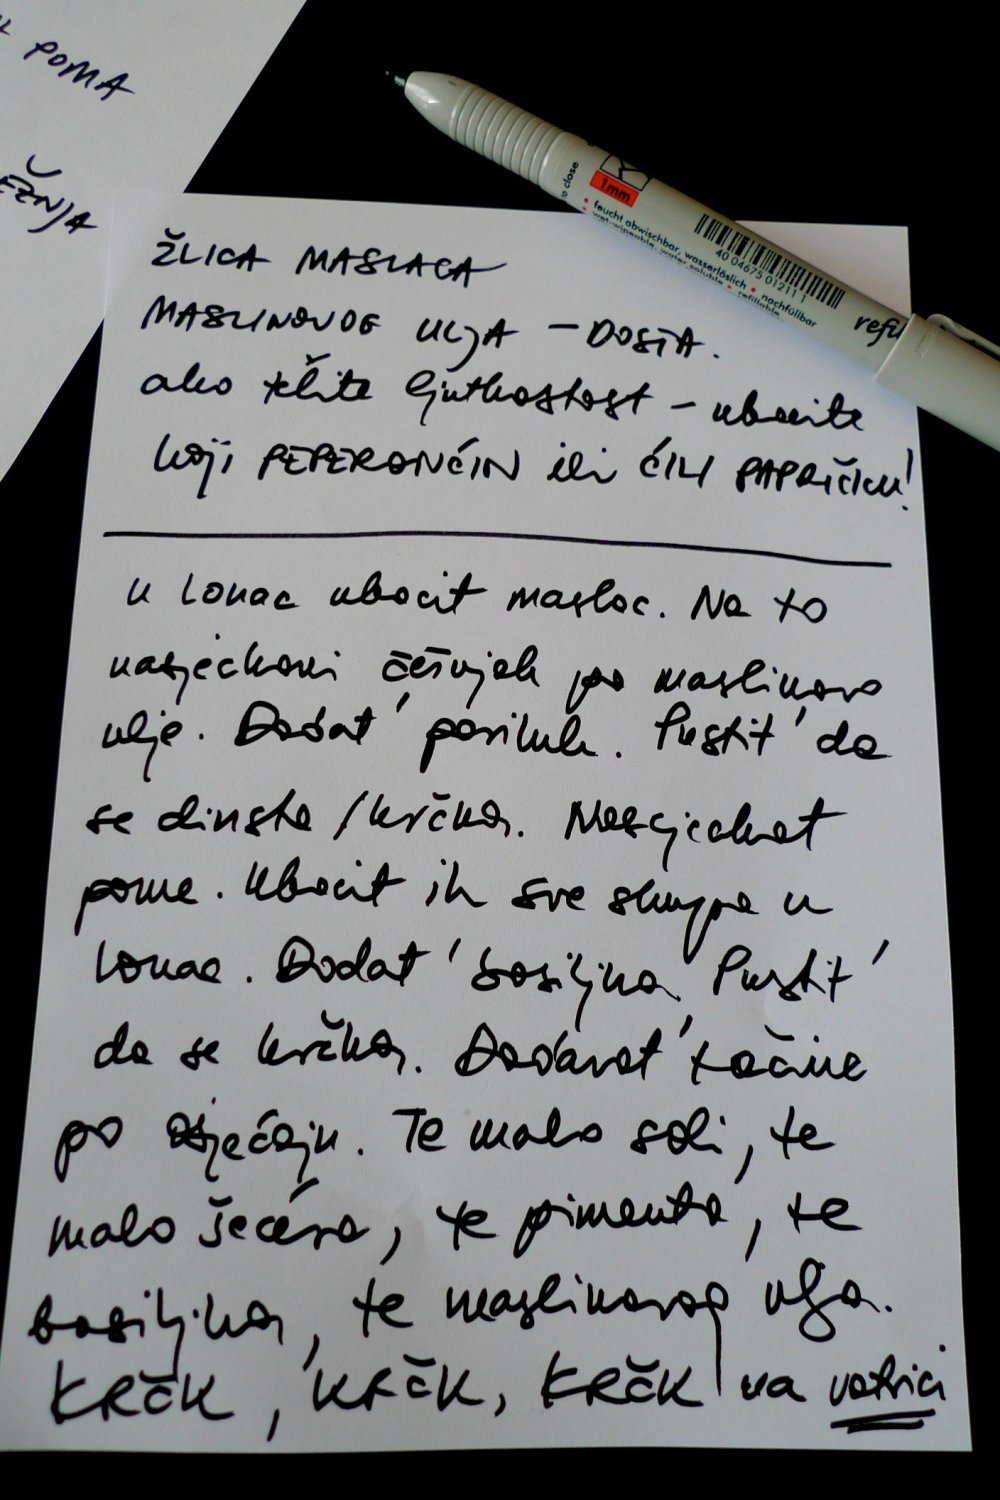 POMA
ŽLICA MASLACA
MASLINOVOG ULJA – DOSTA.
ako želite ljutkastost – ubacite
koji PEPERONČIN ili ČILI PAPRIČICU!
u lonac ubacit maslac. Na to
nasjeckani češnjak po maslinovo
ulje. Dodat' Pustit' da
se dinsta / krčka. Nasjeckat
pome. Ubacit ih sve skupa u
lonac. Dodat' bosiljka. Pustit'
da se krčka. Dodavat' začine
po osjećaju. Te malo soli, te
malo šećera, te pimenta, te
bosiljka, te maslinovog ulja.
KRČK, KRČK, KRČK na vatrici
to close
1mm
feucht abwischbar, wasserlöslich • nachfüllbar
wet-wipeable, water soluble • refillable
40 04675 01211 1
refi